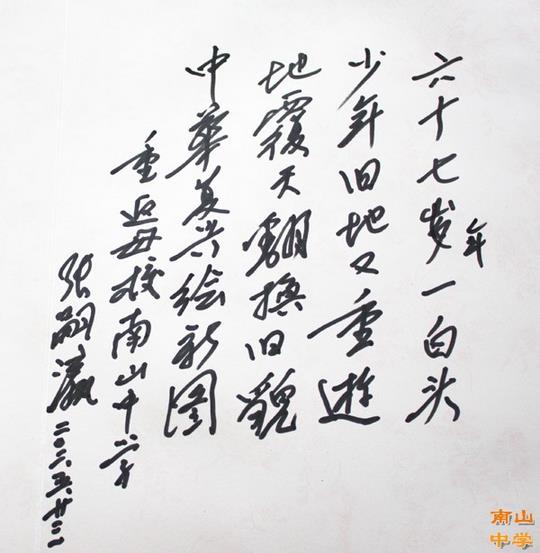 六十七岁年一白头
少年旧地又重遊
地覆天翻换旧貌
中華复兴绘新图
重返母校南山中学
张嗣瀛
南山
中学